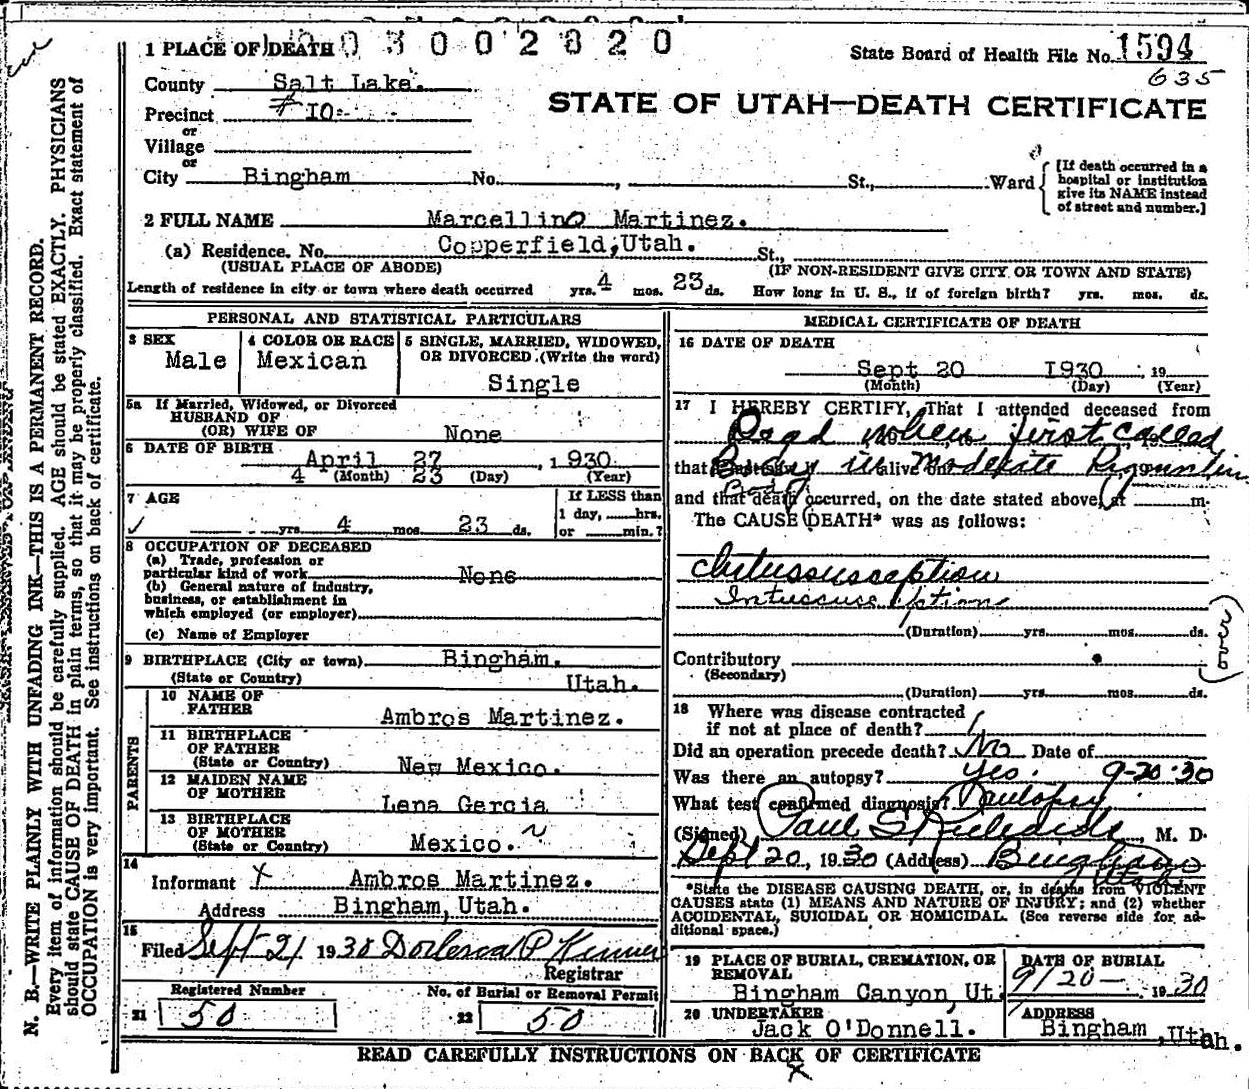 1 PLACE OF DEATH 0 3 0 0 2 8 2 0
State Board of Health File No. 1594
635
County Salt Lake.
STATE OF UTAH—DEATH CERTIFICATE
Precinct # 10-
or
Village
or
City Bingham No. , St., Ward
[If death occurred in a hospital or institution give its NAME instead of street and number.]
2 FULL NAME Marcellino Martinez.
(a) Residence. No. Copperfield, Utah. St.,
(USUAL PLACE OF ABODE) (IF NON-RESIDENT GIVE CITY OR TOWN AND STATE)
Length of residence in city or town where death occurred yrs. 4 mos. 23 ds. How long in U. S., if of foreign birth? yrs. mos. ds.
PERSONAL AND STATISTICAL PARTICULARS
3 SEX
Male
4 COLOR OR RACE
Mexican
5 SINGLE, MARRIED, WIDOWED,
OR DIVORCED (Write the word)
Single
5a If Married, Widowed, or Divorced
HUSBAND OF
(OR) WIFE OF None
6 DATE OF BIRTH
April 27 , 1930
4 (Month) 23 (Day) (Year)
7 AGE
yrs. 4 mos. 23 ds.
If LESS than
1 day, hrs.
or min.?
8 OCCUPATION OF DECEASED
(a) Trade, profession or
particular kind of work None
(b) General nature of industry,
business, or establishment in
which employed (or employer)
(c) Name of Employer
9 BIRTHPLACE (City or town) Bingham.
(State or Country) Utah.
PARENTS
10 NAME OF
FATHER Ambros Martinez.
11 BIRTHPLACE
OF FATHER
(State or Country) New Mexico.
12 MAIDEN NAME
OF MOTHER Lena Gercia
13 BIRTHPLACE
OF MOTHER
(State or Country) Mexico.
14
Informant x Ambros Martinez.
Address Bingham, Utah.
15
Filed Sept 21 1930
Registrar
Registered Number
21 50
No. of Burial or Removal Permit
22 50
MEDICAL CERTIFICATE OF DEATH
16 DATE OF DEATH
Sept 20 1930 , 19
(Month) (Day) (Year)
17 I HEREBY CERTIFY, That I attended deceased from
Dead when first called
that alive on , 19
Body in Moderate
and that death occurred, on the date stated above, at m.
Body
The CAUSE DEATH* was as follows:
Intussusception
Intussusception
(Duration) yrs. mos. ds.
Contributory
(Secondary)
(Duration) yrs. mos. ds.
18 Where was disease contracted
if not at place of death?
Did an operation precede death? No Date of
Was there an autopsy? Yes. 9-20-30
What test confirmed diagnosis? Autopsy
(Signed) Paul S Richards, M. D.
Sept 20, 1930 (Address) Bingham
Utah
*State the DISEASE CAUSING DEATH, or, in deaths from VIOLENT
CAUSES state (1) MEANS AND NATURE OF INJURY; and (2) whether
ACCIDENTAL, SUICIDAL OR HOMICIDAL. (See reverse side for ad-
ditional space.)
19 PLACE OF BURIAL, CREMATION, OR
REMOVAL
Bingham Canyon, Ut.
DATE OF BURIAL
9/20- 1930
20 UNDERTAKER
Jack O'Donnell.
ADDRESS
Bingham, Utah.
READ CAREFULLY INSTRUCTIONS ON BACK OF CERTIFICATE
x
N. B.—WRITE PLAINLY WITH UNFADING INK—THIS IS A PERMANENT RECORD.
Every item of information should be carefully supplied. AGE should be stated EXACTLY. PHYSICIANS
should state CAUSE OF DEATH in plain terms, so that it may be properly classified. Exact statement of
OCCUPATION is very important. See instructions on back of certificate.